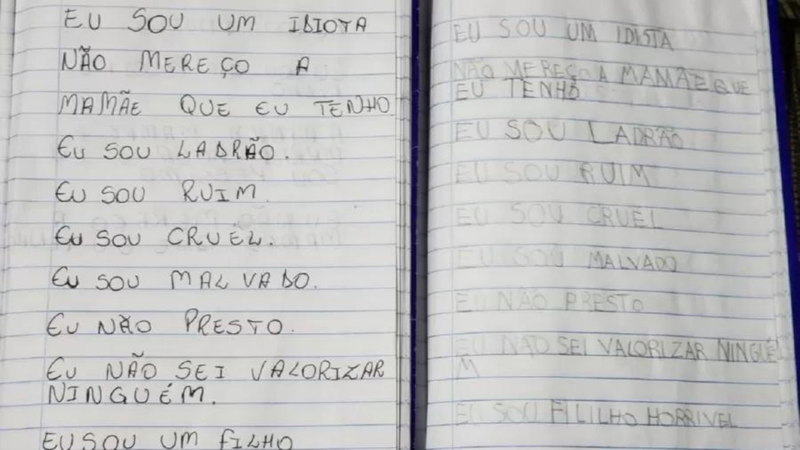 EU SOU UM IDIOTA
NÃO MEREÇO A
MAMÃE QUE EU TENHO
EU SOU LADRÃO.
EU SOU RUIM.
EU SOU CRUEL.
EU SOU MALVADO.
EU NÃO PRESTO.
EU NÃO SEI VALORIZAR
NINGUÉM.
EU SOU UM FILHO
EU SOU UM IDIOTA
NÃO MEREÇO A MAMÃE QUE
EU TENHO
EU SOU LADRÃO
EU SOU RUIM
EU SOU CRUEL
EU SOU MALVADO
EU NÃO PRESTO
EU NAO SEI VALORIZAR NINGUÉ
M
EU SOU FILILHO HORRIVEL